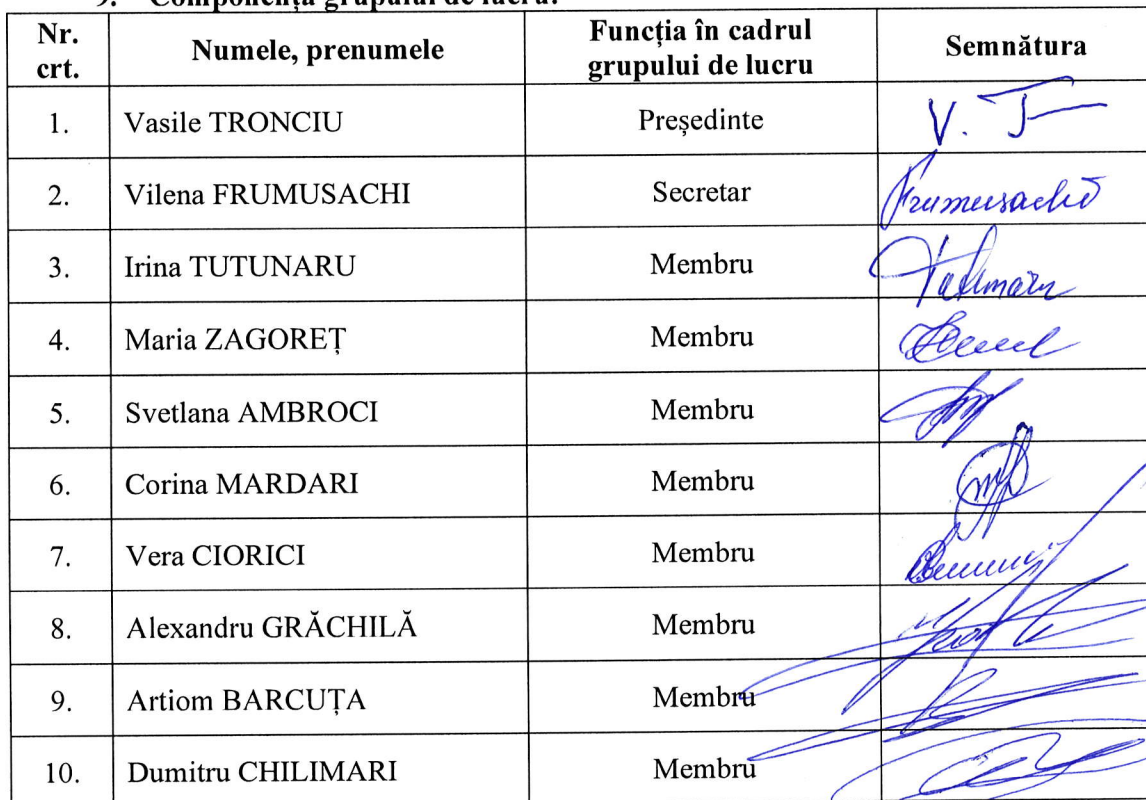 9. Componența grupului de lucru:
Nr. crt. Numele, prenumele Funcția în cadrul grupului de lucru Semnătura
1. Vasile TRONCIU Președinte V. T
2. Vilena FRUMUSACHI Secretar Frumusachi
3. Irina TUTUNARU Membru
4. Maria ZAGOREȚ Membru
5. Svetlana AMBROCI Membru
6. Corina MARDARI Membru
7. Vera CIORICI Membru
8. Alexandru GRĂCHILĂ Membru
9. Artiom BARCUȚA Membru
10. Dumitru CHILIMARI Membru